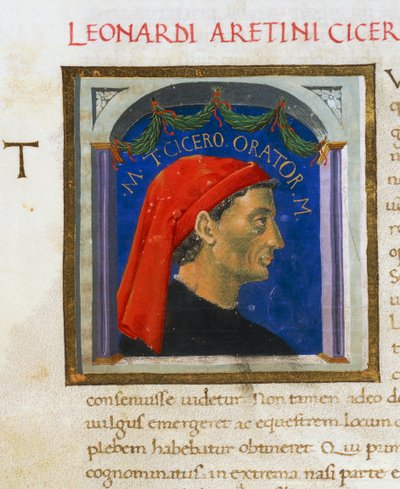 LEONARDI ARETINI CICER
T
·M·T·CICERO·ORATOR·M·
consenuisse uidetur. Non tamen adeo de
uulgus emergeret ac equestrem locum c
plebem habebatur obtineret. Qui prim
cognominatus: in extrema nasi parte e